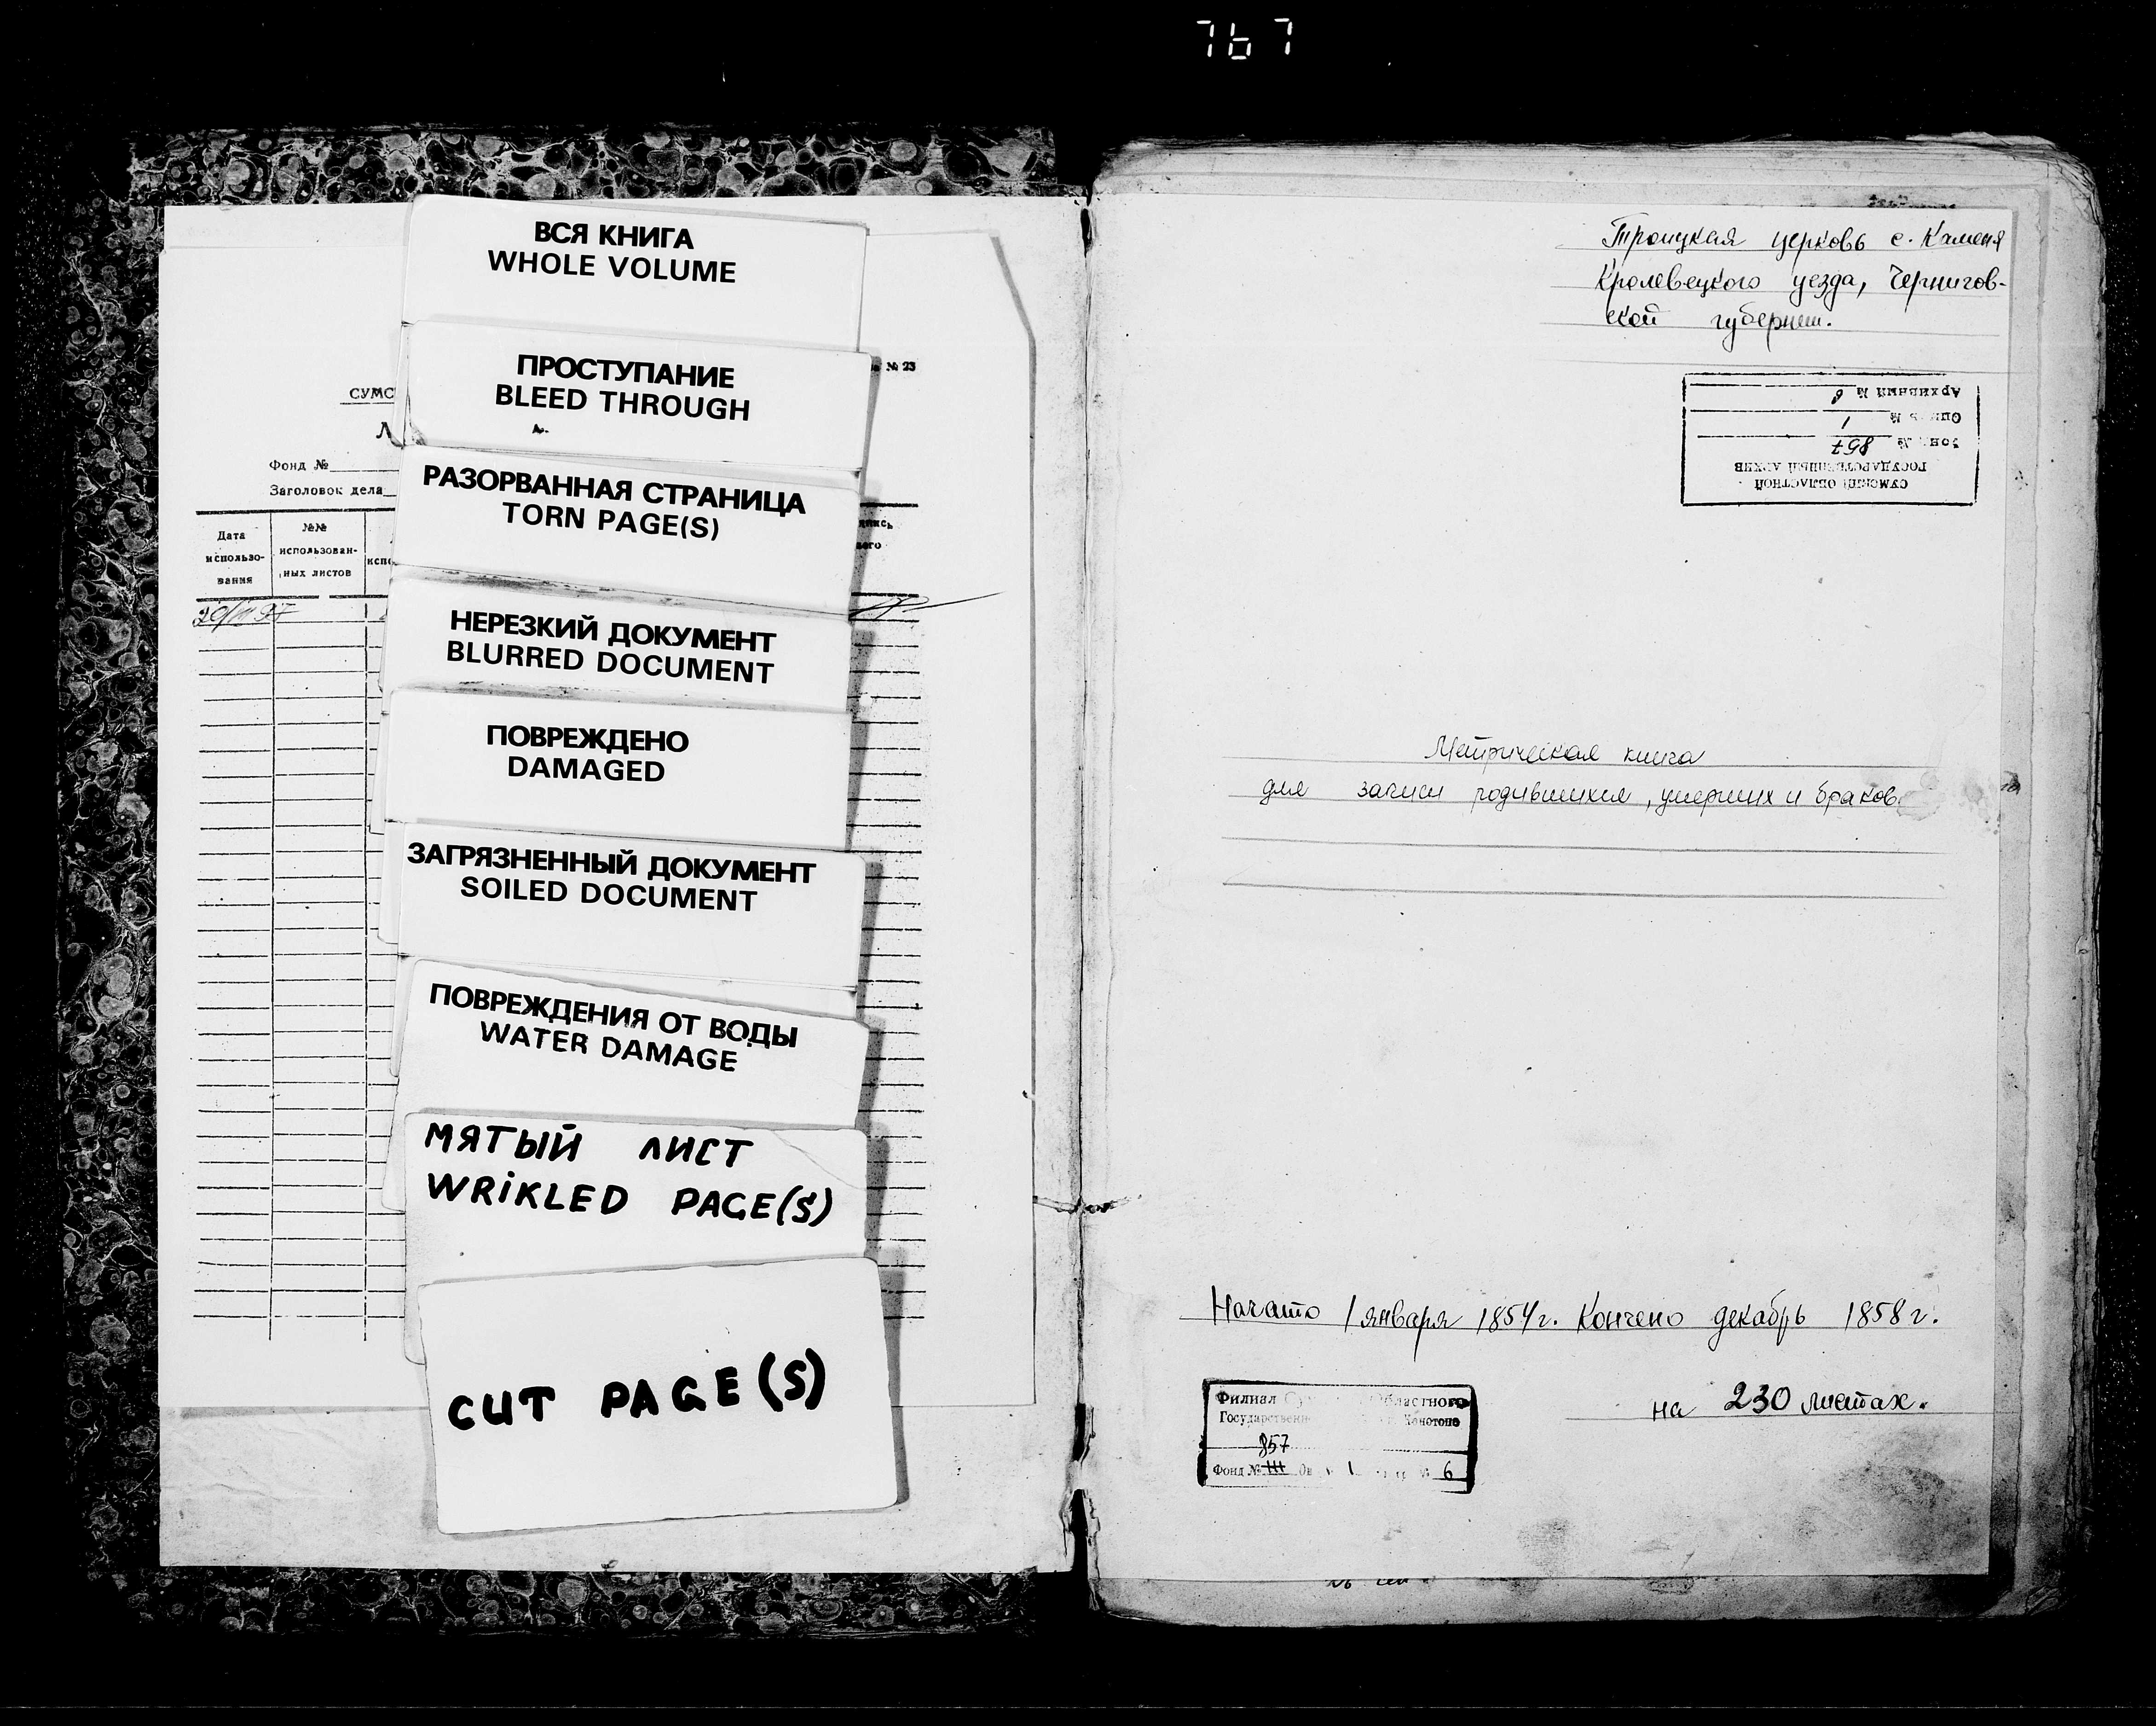 767
№ 23
СУМС
Л
Фонд №
Заголовок дела
Дата
использо-
вания
№№
использован-
ных листов
испо
ВСЯ КНИГА
WHOLE VOLUME
ПРОСТУПАНИЕ
BLEED THROUGH
РАЗОРВАННАЯ СТРАНИЦА
TORN PAGE(S)
НЕРЕЗКИЙ ДОКУМЕНТ
BLURRED DOCUMENT
ПОВРЕЖДЕНО
DAMAGED
ЗАГРЯЗНЕННЫЙ ДОКУМЕНТ
SOILED DOCUMENT
ПОВРЕЖДЕНИЯ ОТ ВОДЫ
WATER DAMAGE
МЯТЫЙ ЛИСТ
WRIKLED PAGE(S)
CUT PAGE(S)
Троицкая церковь с. Каменя
Кролевецкого уезда, Чернигов-
ской губернии.
СУМСКИЙ ОБЛАСТНОЙ
ГОСУДАРСТВЕННЫЙ АРХИВ
Фонд № 857
Опись № 1
Архивный № 6
Метрическая книга
для записи родившихся, умерших и браков
Начато 1 января 1854 г. Кончено декабрь 1858 г.
на 230 листах.
Филиал Областного
Государственн Конотопе
857
Фонд № 1 6